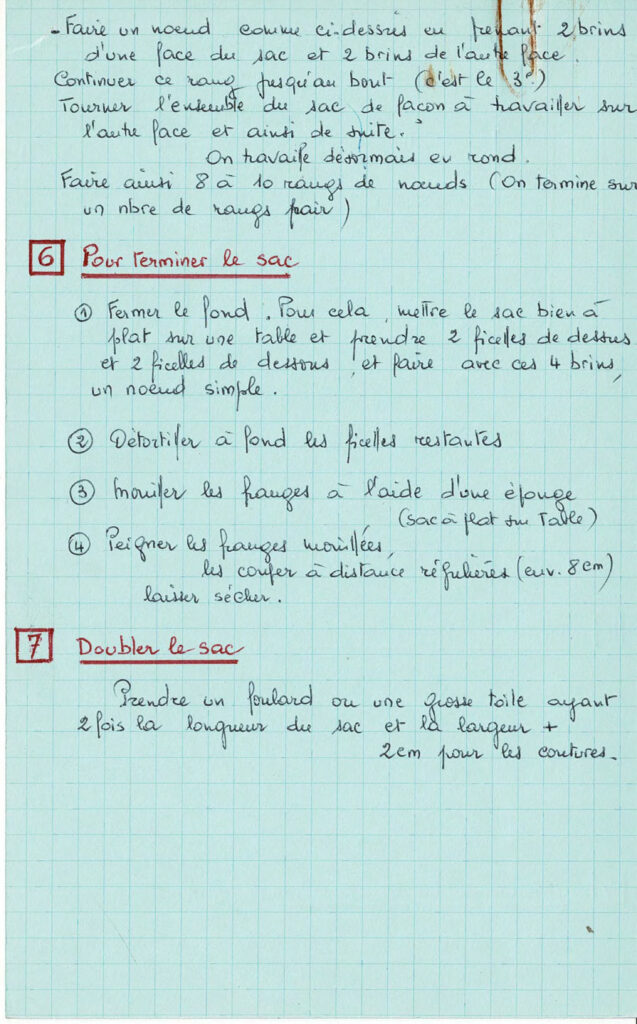 - Faire un noeud comme ci-dessus en prenant 2 brins
d'une face du sac et 2 brins de l'autre face.
Continuer ce rang jusqu'au bout (c'est le 3e)
Tourner l'ensemble du sac de façon à travailler sur
l'autre face et ainsi de suite.
On travaille désormais en rond.
Faire ainsi 8 à 10 rangs de noeuds (On termine sur
un nbre de rangs pair)
6 Pour terminer le sac
① Fermer le fond. Pour cela, mettre le sac bien à
plat sur une table et prendre 2 ficelles de dessus
et 2 ficelles de dessous, et faire avec ces 4 brins,
un noeud simple.
② Détortiller à fond les ficelles restantes
③ Mouiller les franges à l'aide d'une éponge
(sac à plat sur table)
④ Peigner les franges mouillées,
les couper à distance régulières (env. 8 cm)
laisser sécher.
7 Doubler le sac
Prendre un foulard ou une grosse toile ayant
2 fois la longueur du sac et la largeur +
2 cm pour les coutures.